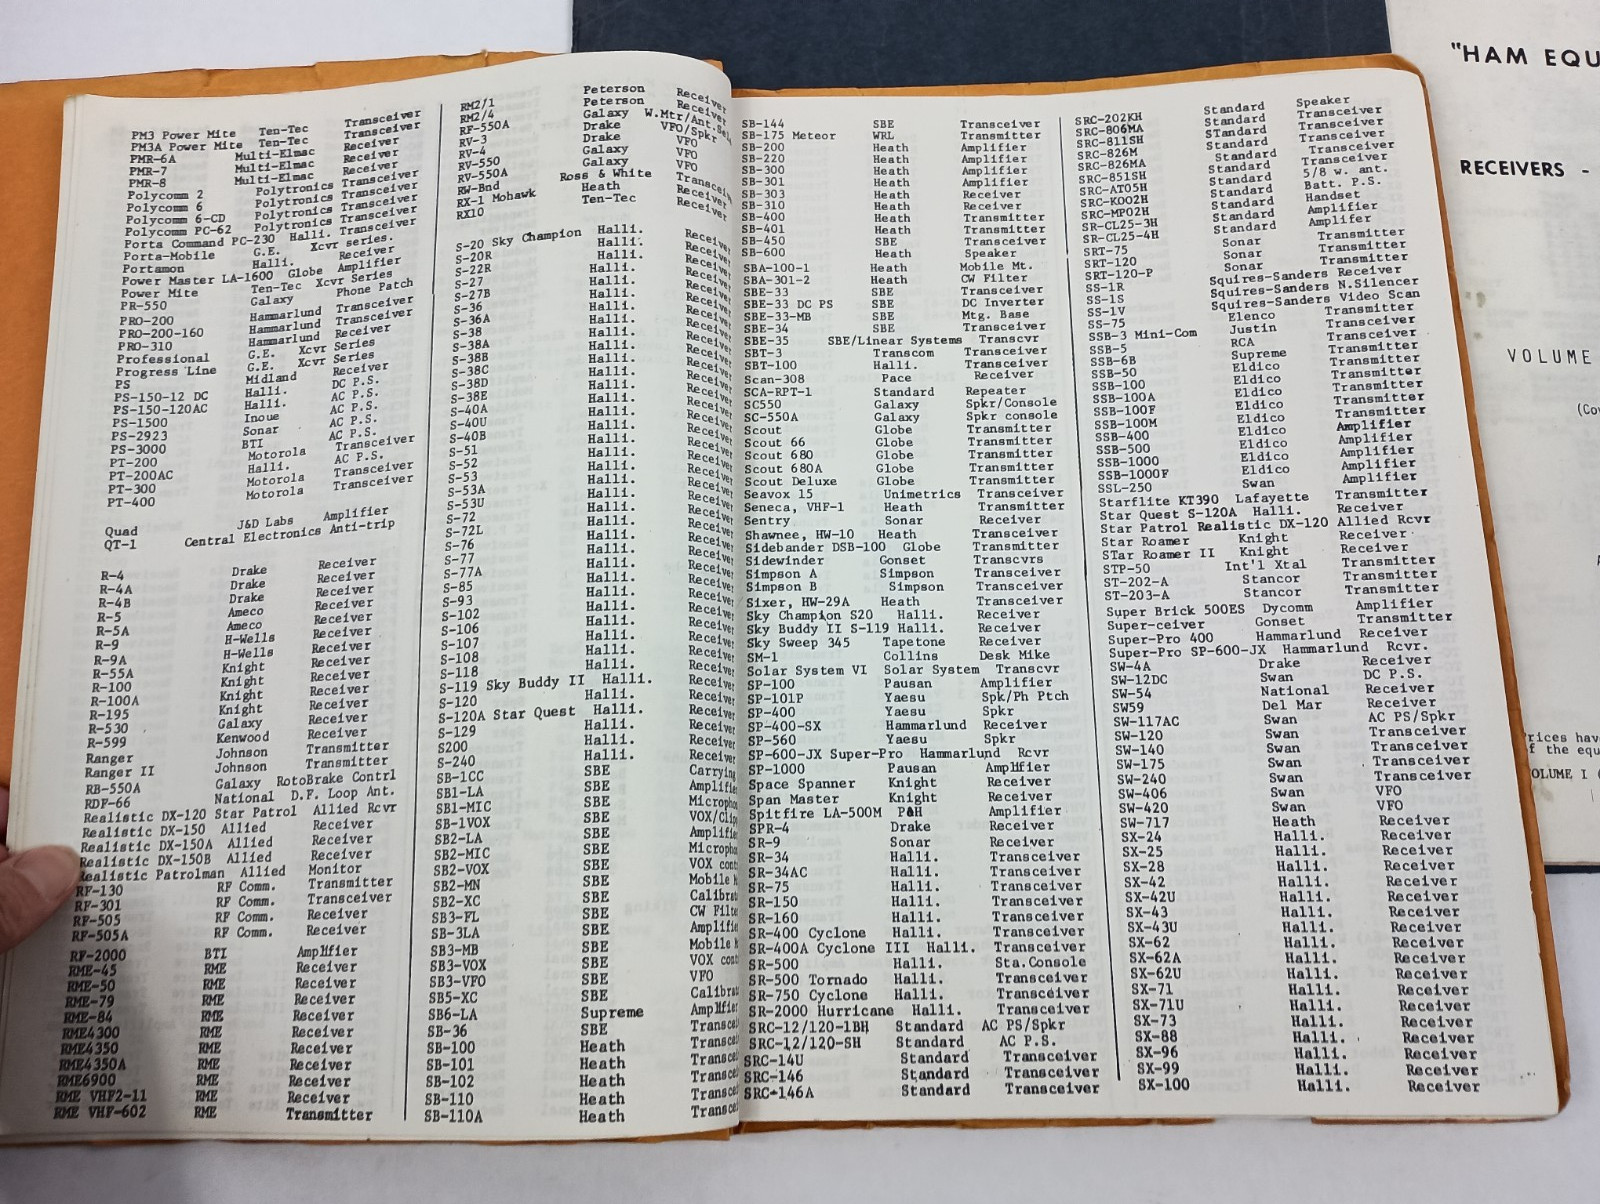 PM3 Power Mite Ten-Tec Transceiver
PM3A Power Mite Ten-Tec Transceiver
PMR-6A Multi-Elmac Receiver
PMR-7 Multi-Elmac Receiver
PMR-8 Multi-Elmac Receiver
Polycomm 2 Polytronics Transceiver
Polycomm 6 Polytronics Transceiver
Polycomm 6-CD Polytronics Transceiver
Polycomm PC-62 Polytronics Transceiver
Porta Command PC-230 Halli. Transceiver
Porta-Mobile G.E. Xcvr series.
Portamon Halli. Receiver
Power Master LA-1600 Globe Amplifier
Power Mite Ten-Tec Xcvr Series
PR-550 Galaxy Phone Patch
PRO-200 Hammarlund Transceiver
PRO-200-160 Hammarlund Transceiver
PRO-310 Hammarlund Receiver
Professional G.E. Xcvr Series
Progress Line G.E. Xcvr Series
PS Midland Receiver
PS-150-12 DC Halli. DC P.S.
PS-150-120AC Halli. AC P.S.
PS-1500 Inoue AC P.S.
PS-2923 Sonar AC P.S.
PS-3000 BTI AC P.S.
PT-200 Motorola Transceiver
PT-200AC Halli. AC P.S.
PT-300 Motorola Transceiver
PT-400 Motorola Transceiver
Quad J&D Labs Amplifier
QT-1 Central Electronics Anti-trip
R-4 Drake Receiver
R-4A Drake Receiver
R-4B Drake Receiver
R-5 Ameco Receiver
R-5A Ameco Receiver
R-9 H-Wells Receiver
R-9A H-Wells Receiver
R-55A Knight Receiver
R-100 Knight Receiver
R-100A Knight Receiver
R-195 Knight Receiver
R-530 Galaxy Receiver
R-599 Kenwood Receiver
Ranger Johnson Transmitter
Ranger II Johnson Transmitter
RB-550A Galaxy RotoBrake Contrl
RDF-66 National D.F. Loop Ant.
Realistic DX-120 Star Patrol Allied Rcvr
Realistic DX-150 Allied Receiver
Realistic DX-150A Allied Receiver
Realistic DX-150B Allied Receiver
Realistic Patrolman Allied Monitor
RF-130 RF Comm. Transmitter
RF-301 RF Comm. Transceiver
RF-505 RF Comm. Receiver
RF-505A RF Comm. Receiver
RF-2000 BTI Amplifier
RME-45 RME Receiver
RME-50 RME Receiver
RME-79 RME Receiver
RME-84 RME Receiver
RME4300 RME Receiver
RME4350 RME Receiver
RME4350A RME Receiver
RME6900 RME Receiver
RME VHF2-11 RME Receiver
RME VHF-602 RME Transmitter
RM2/1 Peterson Receiver
RM2/4 Peterson Receiver
RF-550A Galaxy W.Mtr/Ant.Sel
RV-3 Drake VFO/Spkr
RV-4 Drake VFO
RV-550 Galaxy VFO
RV-550A Galaxy VFO
RW-Bnd Ross & White Transceiv
RX-1 Mohawk Heath Receiver
RX10 Ten-Tec Receiver
S-20 Sky Champion Halli. Receiver
S-20R Halli. Receiver
S-22R Halli. Receiver
S-27 Halli. Receiver
S-27B Halli. Receiver
S-36 Halli. Receiver
S-36A Halli. Receiver
S-38 Halli. Receiver
S-38A Halli. Receiver
S-38B Halli. Receiver
S-38C Halli. Receiver
S-38D Halli. Receiver
S-38E Halli. Receiver
S-40A Halli. Receiver
S-40U Halli. Receiver
S-40B Halli. Receiver
S-51 Halli. Receiver
S-52 Halli. Receiver
S-53 Halli. Receiver
S-53A Halli. Receiver
S-53U Halli. Receiver
S-72 Halli. Receiver
S-72L Halli. Receiver
S-76 Halli. Receiver
S-77 Halli. Receiver
S-77A Halli. Receiver
S-85 Halli. Receiver
S-93 Halli. Receiver
S-102 Halli. Receiver
S-106 Halli. Receiver
S-107 Halli. Receiver
S-108 Halli. Receiver
S-118 Halli. Receiver
S-119 Sky Buddy II Halli. Receiver
S-120 Halli. Receiver
S-120A Star Quest Halli. Receiver
S-129 Halli. Receiver
S200 Halli. Receiver
S-240 Halli. Receiver
SB-1CC SBE Carrying
SB1-LA SBE Amplifie
SB1-MIC SBE Micropho
SB-1VOX SBE VOX/Clip
SB2-LA SBE Amplifie
SB2-MIC SBE Micropho
SB2-VOX SBE VOX cont
SB2-MN SBE Mobile M
SB2-XC SBE Calibrat
SB3-FL SBE CW Filte
SB-3LA SBE Amplifie
SB3-MB SBE Mobile M
SB3-VOX SBE VOX cont
SB3-VFO SBE VFO
SB5-XC SBE Calibrat
SB6-LA Supreme Amplifie
SB-36 SBE Transce
SB-100 Heath Transce
SB-101 Heath Transce
SB-102 Heath Transce
SB-110 Heath Transce
SB-110A Heath Transce
SB-144 SBE Transceiver
SB-175 Meteor WRL Transmitter
SB-200 Heath Amplifier
SB-220 Heath Amplifier
SB-300 Heath Amplifier
SB-301 Heath Amplifier
SB-303 Heath Receiver
SB-310 Heath Receiver
SB-400 Heath Transmitter
SB-401 Heath Transmitter
SB-450 SBE Transceiver
SB-600 Heath Speaker
SBA-100-1 Heath Mobile Mt.
SBA-301-2 Heath CW Filter
SBE-33 SBE Transceiver
SBE-33 DC PS SBE DC Inverter
SBE-33-MB SBE Mtg. Base
SBE-34 SBE Transceiver
SBE-35 SBE/Linear Systems Transcvr
SBT-3 Transcom Transceiver
SBT-100 Halli. Transceiver
Scan-308 Pace Receiver
SCA-RPT-1 Standard Repeater
SC550 Galaxy Spkr/Console
SC-550A Galaxy Spkr console
Scout Globe Transmitter
Scout 66 Globe Transmitter
Scout 680 Globe Transmitter
Scout 680A Globe Transmitter
Scout Deluxe Globe Transmitter
Seavox 15 Unimetrics Transceiver
Seneca, VHF-1 Heath Transmitter
Sentry Sonar Receiver
Shawnee, HW-10 Heath Transceiver
Sidebander DSB-100 Globe Transmitter
Sidewinder Gonset Transcvrs
Simpson A Simpson Transceiver
Simpson B Simpson Transceiver
Sixer, HW-29A Heath Transceiver
Sky Champion S20 Halli. Receiver
Sky Buddy II S-119 Halli. Receiver
Sky Sweep 345 Tapetone Receiver
SM-1 Collins Desk Mike
Solar System VI Solar System Transcvr
SP-100 Pausan Amplifier
SP-101P Yaesu Spk/Ph Ptch
SP-400 Yaesu Spkr
SP-400-SX Hammarlund Receiver
SP-560 Yaesu Spkr
SP-600-JX Super-Pro Hammarlund Rcvr
SP-1000 Pausan Amplifier
Space Spanner Knight Receiver
Span Master Knight Receiver
Spitfire LA-500M P&H Amplifier
SPR-4 Drake Receiver
SR-9 Sonar Receiver
SR-34 Halli. Transceiver
SR-34AC Halli. Transceiver
SR-75 Halli. Transceiver
SR-150 Halli. Transceiver
SR-160 Halli. Transceiver
SR-400 Cyclone Halli. Transceiver
SR-400A Cyclone III Halli. Transceiver
SR-500 Halli. Sta.Console
SR-500 Tornado Halli. Transceiver
SR-750 Cyclone Halli. Transceiver
SR-2000 Hurricane Halli. Transceiver
SRC-12/120-1BH Standard AC PS/Spkr
SRC-12/120-SH Standard AC P.S.
SRC-14U Standard Transceiver
SRC-146 Standard Transceiver
SRC-146A Standard Transceiver
SRC-202KH Standard Speaker
SRC-806MA Standard Transceiver
SRC-811SH STandard Transceiver
SRC-826M Standard Transceiver
SRC-826MA Standard Transceiver
SRC-851SH Standard Transceiver
SRC-AT05H Standard 5/8 w. ant.
SRC-K002H Standard Batt. P.S.
SRC-MP02H Standard Handset
SR-CL25-3H Standard Amplifier
SR-CL25-4H Standard Amplifer
SRT-75 Sonar Transmitter
SRT-120 Sonar Transmitter
SRT-120-P Sonar Transmitter
SS-1R Squires-Sanders Receiver
SS-1S Squires-Sanders N.Silencer
SS-1V Squires-Sanders Video Scan
SS-75 Elenco Transmitter
SSB-3 Mini-Com Justin Transceiver
SSB-5 RCA Transceiver
SSB-6B Supreme Transmitter
SSB-50 Eldico Transmitter
SSB-100 Eldico Transmitter
SSB-100A Eldico Transmitter
SSB-100F Eldico Transmitter
SSB-100M Eldico Transmitter
SSB-400 Eldico Amplifier
SSB-500 Eldico Amplifier
SSB-1000 Eldico Amplifier
SSB-1000F Eldico Amplifier
SSL-250 Swan Amplifier
Starflite KT390 Lafayette Transmitter
Star Quest S-120A Halli. Receiver
Star Patrol Realistic DX-120 Allied Rcvr
Star Roamer Knight Receiver
STar Roamer II Knight Receiver
STP-50 Int'l Xtal Transmitter
ST-202-A Stancor Transmitter
ST-203-A Stancor Transmitter
Super Brick 500ES Dycomm Amplifier
Super-ceiver Gonset Transmitter
Super-Pro 400 Hammarlund Receiver
Super-Pro SP-600-JX Hammarlund Rcvr.
SW-4A Drake Receiver
SW-12DC Swan DC P.S.
SW-54 National Receiver
SW59 Del Mar Receiver
SW-117AC Swan AC PS/Spkr
SW-120 Swan Transceiver
SW-140 Swan Transceiver
SW-175 Swan Transceiver
SW-240 Swan Transceiver
SW-406 Swan VFO
SW-420 Swan VFO
SW-717 Heath Receiver
SX-24 Halli. Receiver
SX-25 Halli. Receiver
SX-28 Halli. Receiver
SX-42 Halli. Receiver
SX-42U Halli. Receiver
SX-43 Halli. Receiver
SX-43U Halli. Receiver
SX-62 Halli. Receiver
SX-62A Halli. Receiver
SX-62U Halli. Receiver
SX-71 Halli. Receiver
SX-71U Halli. Receiver
SX-73 Halli. Receiver
SX-88 Halli. Receiver
SX-96 Halli. Receiver
SX-99 Halli. Receiver
SX-100 Halli. Receiver
"HAM EQU
RECEIVERS -
VOLUME
(Co
rices hav
f the equ
OLUME I (